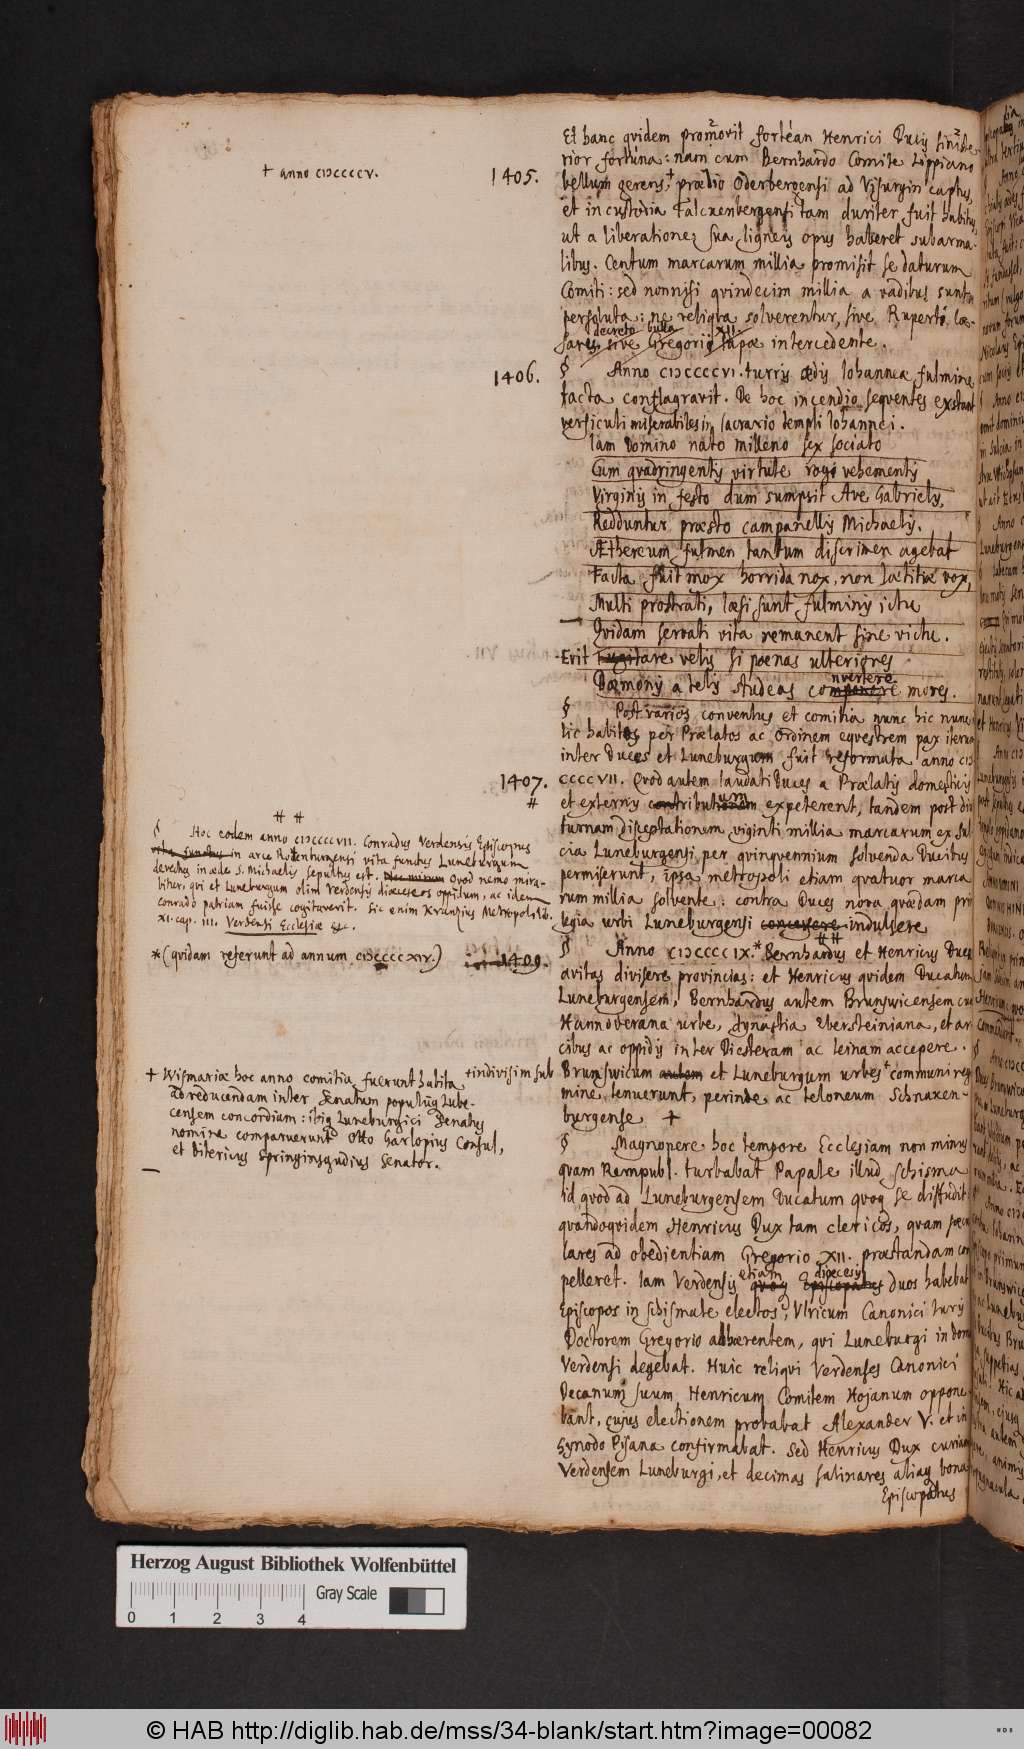 Et hanc quidem promovit fortean Henrici Ducis siniste-
rior fortuna: nam cum Bernhardo Comite Lippiano
+ anno CIƆCCCCV.
1405.
bellum gerens,+ prædio Oderbergensi ad Visurgin captus,
et in custodia Falcxenbergensi tam duriter fuit habitus,
ut a liberatione sua ligneis opus haberet subarma-
libus. Centum marcarum millia promisit se daturum
Comiti: sed nonnisi quindecim millia a vadibus sunt
persoluta: ne reliqua solverentur, sive Ruperto Cæ-
decreto bulla XII.
sares sive Gregorii Papæ intercedente.
1406.
§ Anno CIƆCCCCVI. turris ædis Iohanneæ fulmine
tacta conflagravit. De hoc incendio sequentes exstant
versiculi miserabiles in sacrario templi Iohannei.
Iam Domino nato milleno sex sociato
Cum quadringentis virtute rogi vehementis
Virginis in festo dum sumpsit Ave Gabrielis,
Redduntur præsto campanellis Michaelis.
Æthereum fulmen tantum discrimen agebat
Facta fuit mox horrida nox, non lætitiæ vox,
Multi prostrati, læsi sunt fulminis ictu
Quidam servati vita remanent sine victu.
Evitare velis si poenas ulteriores
nvertere
Dæmonis a telis studeas componere mores.
§ Post varios conventus et comitia nunc hic nunc
lic habitos per Prælatos ac Ordinem equestrem pax iterum
inter Duces et Luneburgum fuit reformata anno CIƆ
1407.
CCCCVII. Quod autem laudati Duces a Prælatis domesticis
#
et externis contributionem expeterent, tandem post diu
turnam disceptationem, viginti millia marcarum ex sul
cia Luneburgensi per quinquennium solvenda Ducibus
permiserunt, ipsa metropoli etiam quatuor marca
rum millia solvente: contra Duces nova quædam pri
legia urbi Luneburgensi concessere indulsere
# #
§ Hoc eodem anno CIƆCCCCVII. Conradus Verdensis Episcopus
vita functus in arce Rotenburnensi vita functus Luneburgum
devectus in æde S. Michaelis sepultus est. Nec mirum Quod nemo mira-
bitur, qui et Luneburgum olim Verdensis diæceseos oppidum, ac idem
Conrado patriam fuisse cogitaverit. Sic enim Kranzius Metropol. lib.
XI. cap. III. Verdensi Ecclesiæ &c.
# #
* (quidam referunt ad annum CIƆCCCCXIV.)
1409.
§ Anno CIƆCCCCIX.* Bernhardus et Henricus Duces
avitas divisere provincias: et Henricus quidem Ducatum
Luneburgensem, Bernhardus autem Brunswicensem cum
Hannoverana urbe, dynastia Ebersteiniana, et ar
cibus ac oppidis inter Diesteram ac Leinam accepere.
+ indivisim sub
Brunswicum autem et Luneburgum urbes+ communi reg
mine tenuerunt, perinde ac teloneum Schnaxen-
burgense +
+ Wismariæ hoc anno comitia fuerunt habita
ad reducendam inter Senatum populumque Lube-
censem concordiam: ibiq Luneburgici Senatus
nomine comparuerunt Otto Garlopius Consul,
et Ditericus Springinsgudius Senator.
§ Magnopere hoc tempore Ecclesiam non minus
quam Rempubl. turbabat Papale illud schisma
id quod ad Luneburgensem Ducatum quoq se diffudit
quandoquidem Henricus Dux tam clericos, quam sæcu
lares ad obedientiam Gregorio XII. præstandam com
etiam diœcesis
pelleret. Iam Verdensis quoq Episcopatus duos habebat
Episcopos in schismate electos, Ulricum Canonici Iuris
Doctorem Gregorio adhærentem, qui Luneburgi in domo
Verdensi degebat. Huic reliqui Verdenses Canonici
Decanum suum Henricum Comitem Hojanum oppone-
bant, cujus electionem probabat Alexander V. et in
Synodo Pisana confirmabat. Sed Henricus Dux curiam
Verdensem Luneburgi, et decimas salinares aliaq bona
Episcopatus
Herzog August Bibliothek Wolfenbüttel
Gray Scale
0 1 2 3 4
© HAB http://diglib.hab.de/mss/34-blank/start.htm?image=00082